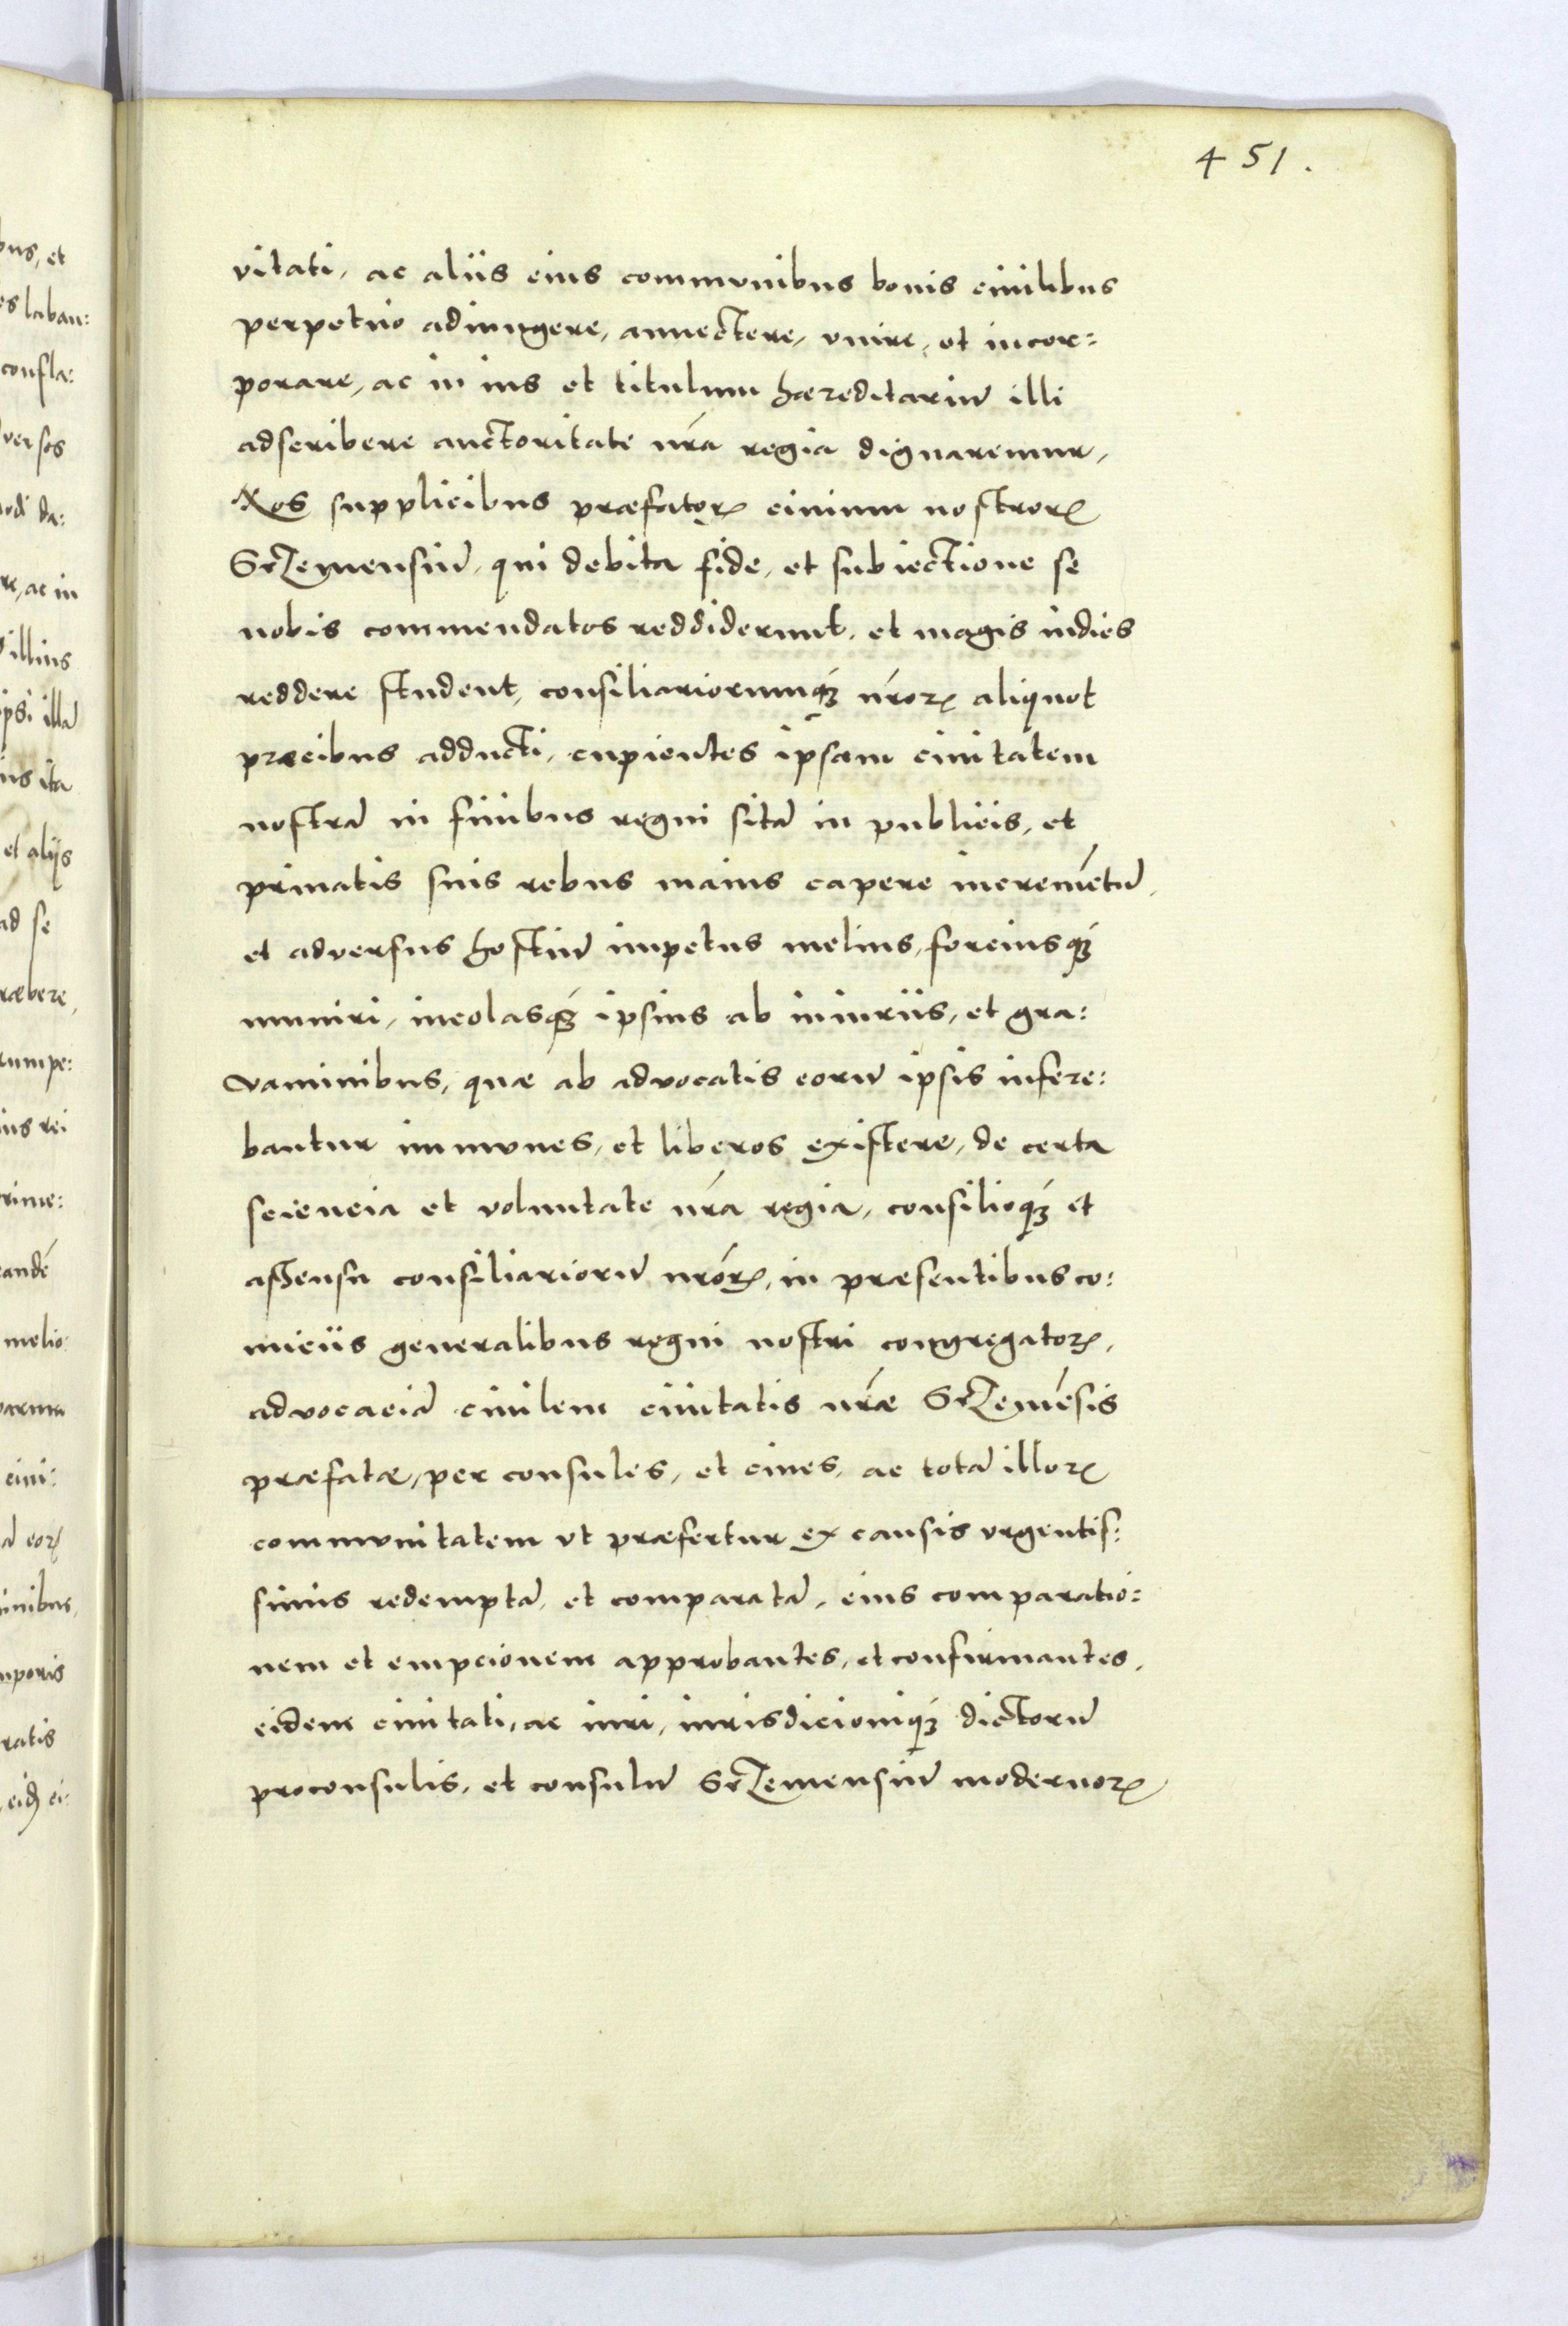 451.
vitati, ac aliis eius communibus bonis ciuilibus
perpetuo adiungere, annectere, vnire, et incor:
porare, ac in ius et titulum hæreditariū illi
adscribere auctoritate nr̄a regia dignaremur,
Nos supplicibus præfatoꝝ ciuium nostroꝝ
Srzemensiū, qui debita fide, et subiectione se
nobis commendatos reddiderunt, et magis indies
reddere student, consiliariorumqꝫ nr̄oꝝ aliquot
præcibus adducti, cupientes ipsam ciuitatem
nostrā in finibus regni sitā in publicis, et
priuatis suis rebus maius capere incremētū,
et adversus hostiū impetus melius, forciusqꝫ
muniri, incolasqꝫ ipsius ab iniuriis, et gra:
vaminibus, quæ ab advocatis eorū ipsis infere:
bantur immunes, et liberos existere, de certa
sciencia et voluntate nr̄a regia, consilioqꝫ et
assensu consiliariorū nr̄oꝝ, in præsentibus co:
miciis generalibus regni nostri congregatoꝝ,
advocaciā ciuilem ciuitatis nr̄æ Srzemēsis
præfatæ, per consules, et ciues, ac totā illoꝝ
communitatem vt præfertur ex causis vrgentis:
simis redemptā, et comparatā, eius comparatio:
nem et empcionem approbantes, et confirmantes,
eidem ciuitati, ac iuri, iurisdicioniqꝫ dictorū
proconsulis, et consulū Srzemensiū modernoꝝ
bus, et
es laban:
confla:
versos
modi da:
re, ac in
illius
ipsi illā
ius ita
et aliis
ad se
ræbere,
rumpe:
ius rei
rime:
eandē
melio:
ciui:
eoꝝ
inibus,
mporis
ratis